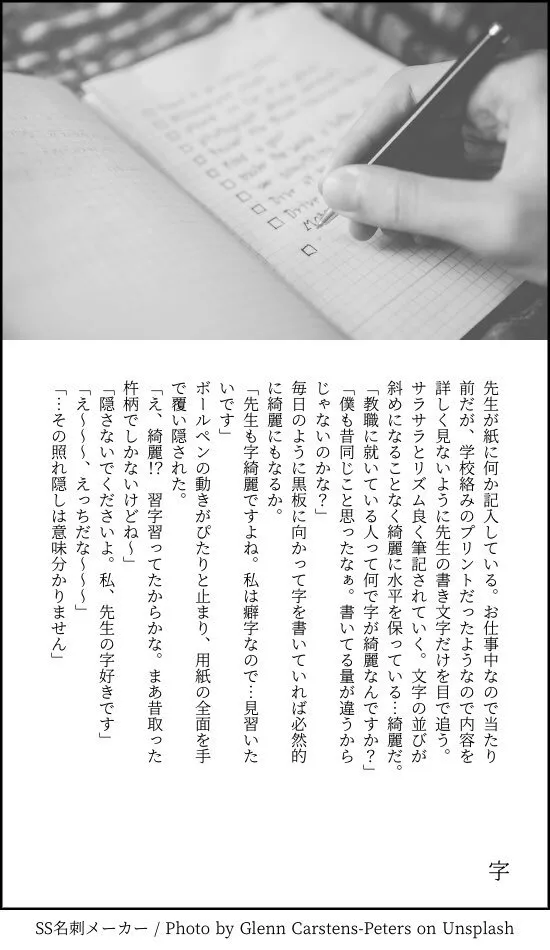 先生が紙に何か記入している。お仕事中なので当たり
前だが、学校絡みのプリントだったようなので内容を
詳しく見ないように先生の書き文字だけを目で追う。
サラサラとリズム良く筆記されていく。文字の並びが
斜めになることなく綺麗に水平を保っている…綺麗だ。
「教職に就いている人って何で字が綺麗なんですか？」
「僕も昔同じこと思ったなぁ。書いてる量が違うから
じゃないのかな？」
毎日のように黒板に向かって字を書いていれば必然的
に綺麗にもなるか。
「先生も字綺麗ですよね。私は癖字なので…見習いた
いです」
ボールペンの動きがぴたりと止まり、用紙の全面を手
で覆い隠された。
「え、綺麗!?　習字習ってたからかな。まあ昔取った
杵柄でしかないけどね～」
「隠さないでくださいよ。私、先生の字好きです」
「え～～～、えっちだな～～～」
「…その照れ隠しは意味分かりません」
字
SS名刺メーカー / Photo by Glenn Carstens-Peters on Unsplash